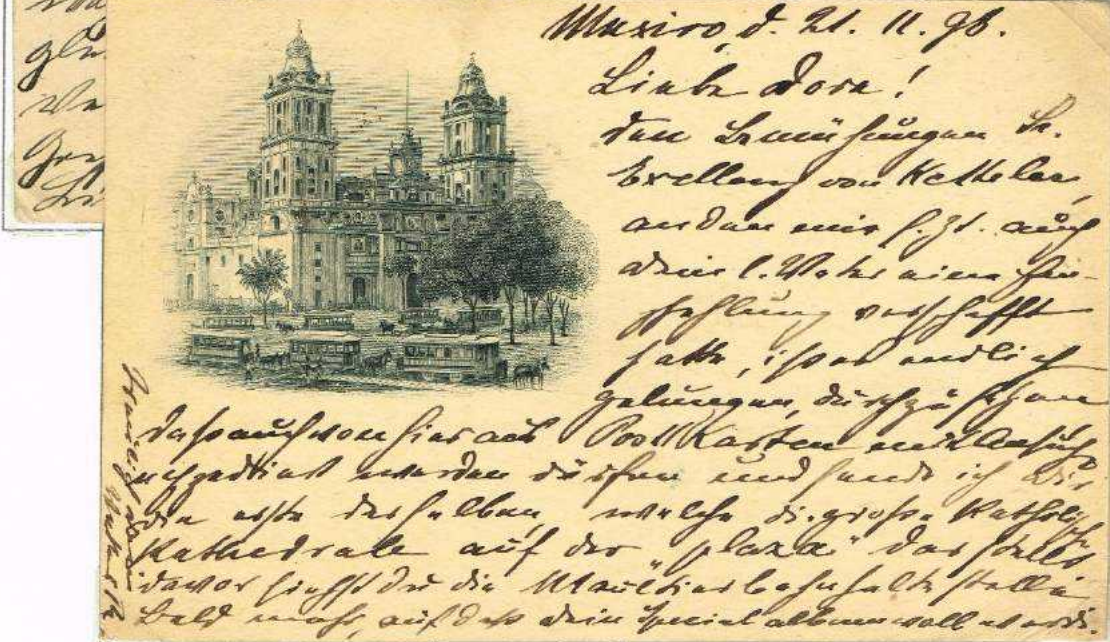 Mexico, d. 21. 11. 96.
Liebe Dora!
Den Bemühungen Sr.
Excellenz von Ketteler,
an den mir s. Zt. auch
Dein l. Vater eine Em-
pfehlung verschafft
hatte, ist es endlich
gelungen, durchzusetzen
daß auch von hier aus Postkarten mit Ansicht
expediert werden dürfen und sende ich Dir
die erste derselben, welche die große Katholische
Kathedrale auf der "plaza" darstellt
davor siehst du die Maultierbahnhaltestelle
Bald mehr, auf daß dein Specialalbum voll werde.